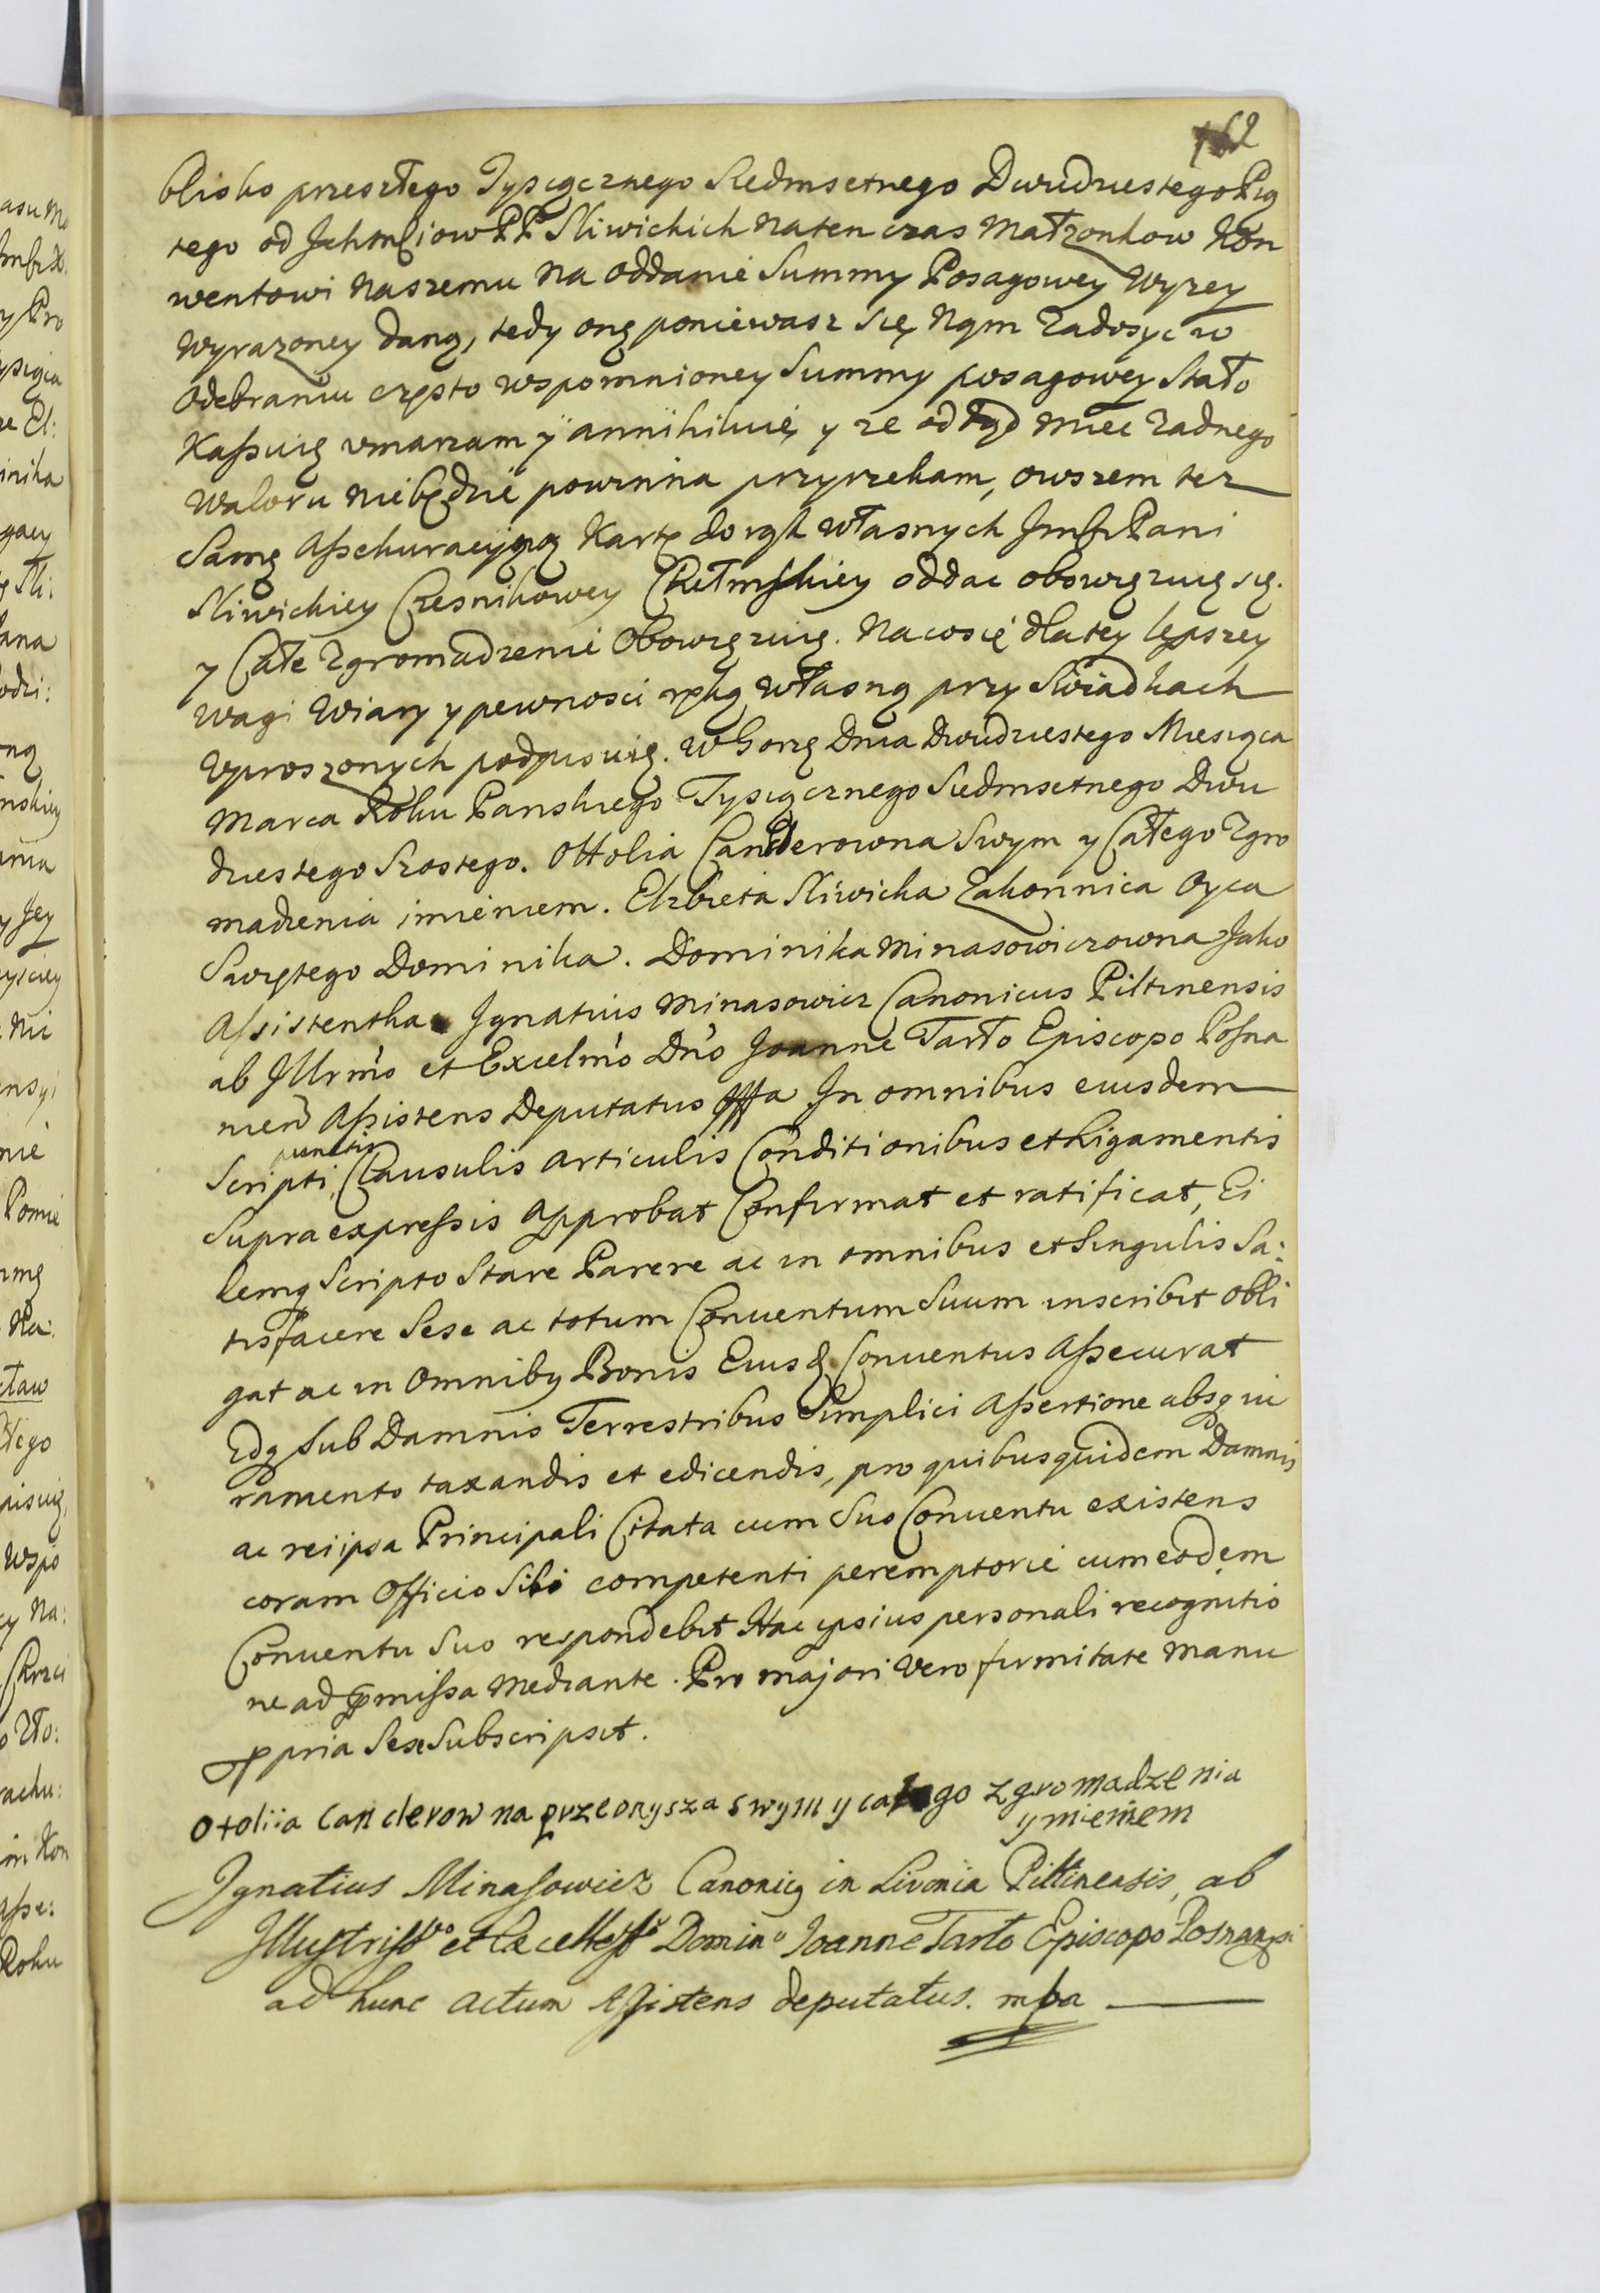 162
blisko przeszłego Tysiącznego Siedmsetnego Dwudziestego Pią
tego od Ichmściow PP Sliwickich naten czas Małzonkow Kon
wentowi naszemu na oddanie Summy Posagowey wyzey
wyrazoney daną, tedy onę poniewasz się nąm zadosyc w
odebraniu często wspomnioney Summy posagowey stało
Kassuię umarzam y annihiluię y ze odtąd miec zadnego
waloru niebędzie powinna przyrzekam, owszem tez
Samę Assekuracyiną Kartę do rąk własnych Jmsci Pani
Sliwickiey Czesnikowey Chełmskiey oddac obowięzuię się.
y Całe Zgromadzenie Obowięzuię. Na co się dla tey lepszey
wagi Wiary y pewnosci ręką własną przy Swiadkach
Uproszonych podpisuię. W Gorze Dnia Dwudziestego Miesiąca
Marca Roku Panskiego Tysiącznego Siedmsetnego Dwu
dziestego Szostego. Ottolia Canderowna Swym y Całego Zgro
madzenia imieniem. Elzbieta Sliwicka Zakonnica Oyca
Swiętego Dominika. Dominika Minasowiczowna Jako
Assistentka Ignatius Minasowicz Canonicus Piltinensis
ab Illrmo et Excelmo Dno Joanne Tarło Episcopo Posna
nien Assistens Deputatus In omnibus eiusdem
punctis
Scripti, Clausulis articulis Conditionibus et Ligamentis
Supra expressis Approbat Confirmat et ratificat, Ei
demq Scripto Stare Parere ac in omnibus et Singulis Sa:
tisfacere Sese ac totum Conventum Suum inscribit obli
gat ac in Omnibus Bonis Eius & Conventus Assecurat
Idq Sub Damnis Terrestribus Simplici Assertione absq iu
ramento taxandis et edicendis, pro quibus quidem Damnis
ac rei ipsa Principali Citata cum Suo Conventu existens
coram Officio Sibi competenti peremptorie cum eodem
Conventu Suo respondebit Hac ipsius personali recognitio
ne ad pmissa Mediante. Pro majori Vero firmitate manu
ppria Sese Subscripsit.
Otoliia Canclerowna przeorysza swym y całego zgromadzenia
ymieniem
Ignatius Minasowicz Canonicq in Livonia Piltinensis, ab
Illustrissmo et Excellesso Domino Joanne Tarło Episcopo Posnansi
ad hunc actum Assistens deputatus. mpa